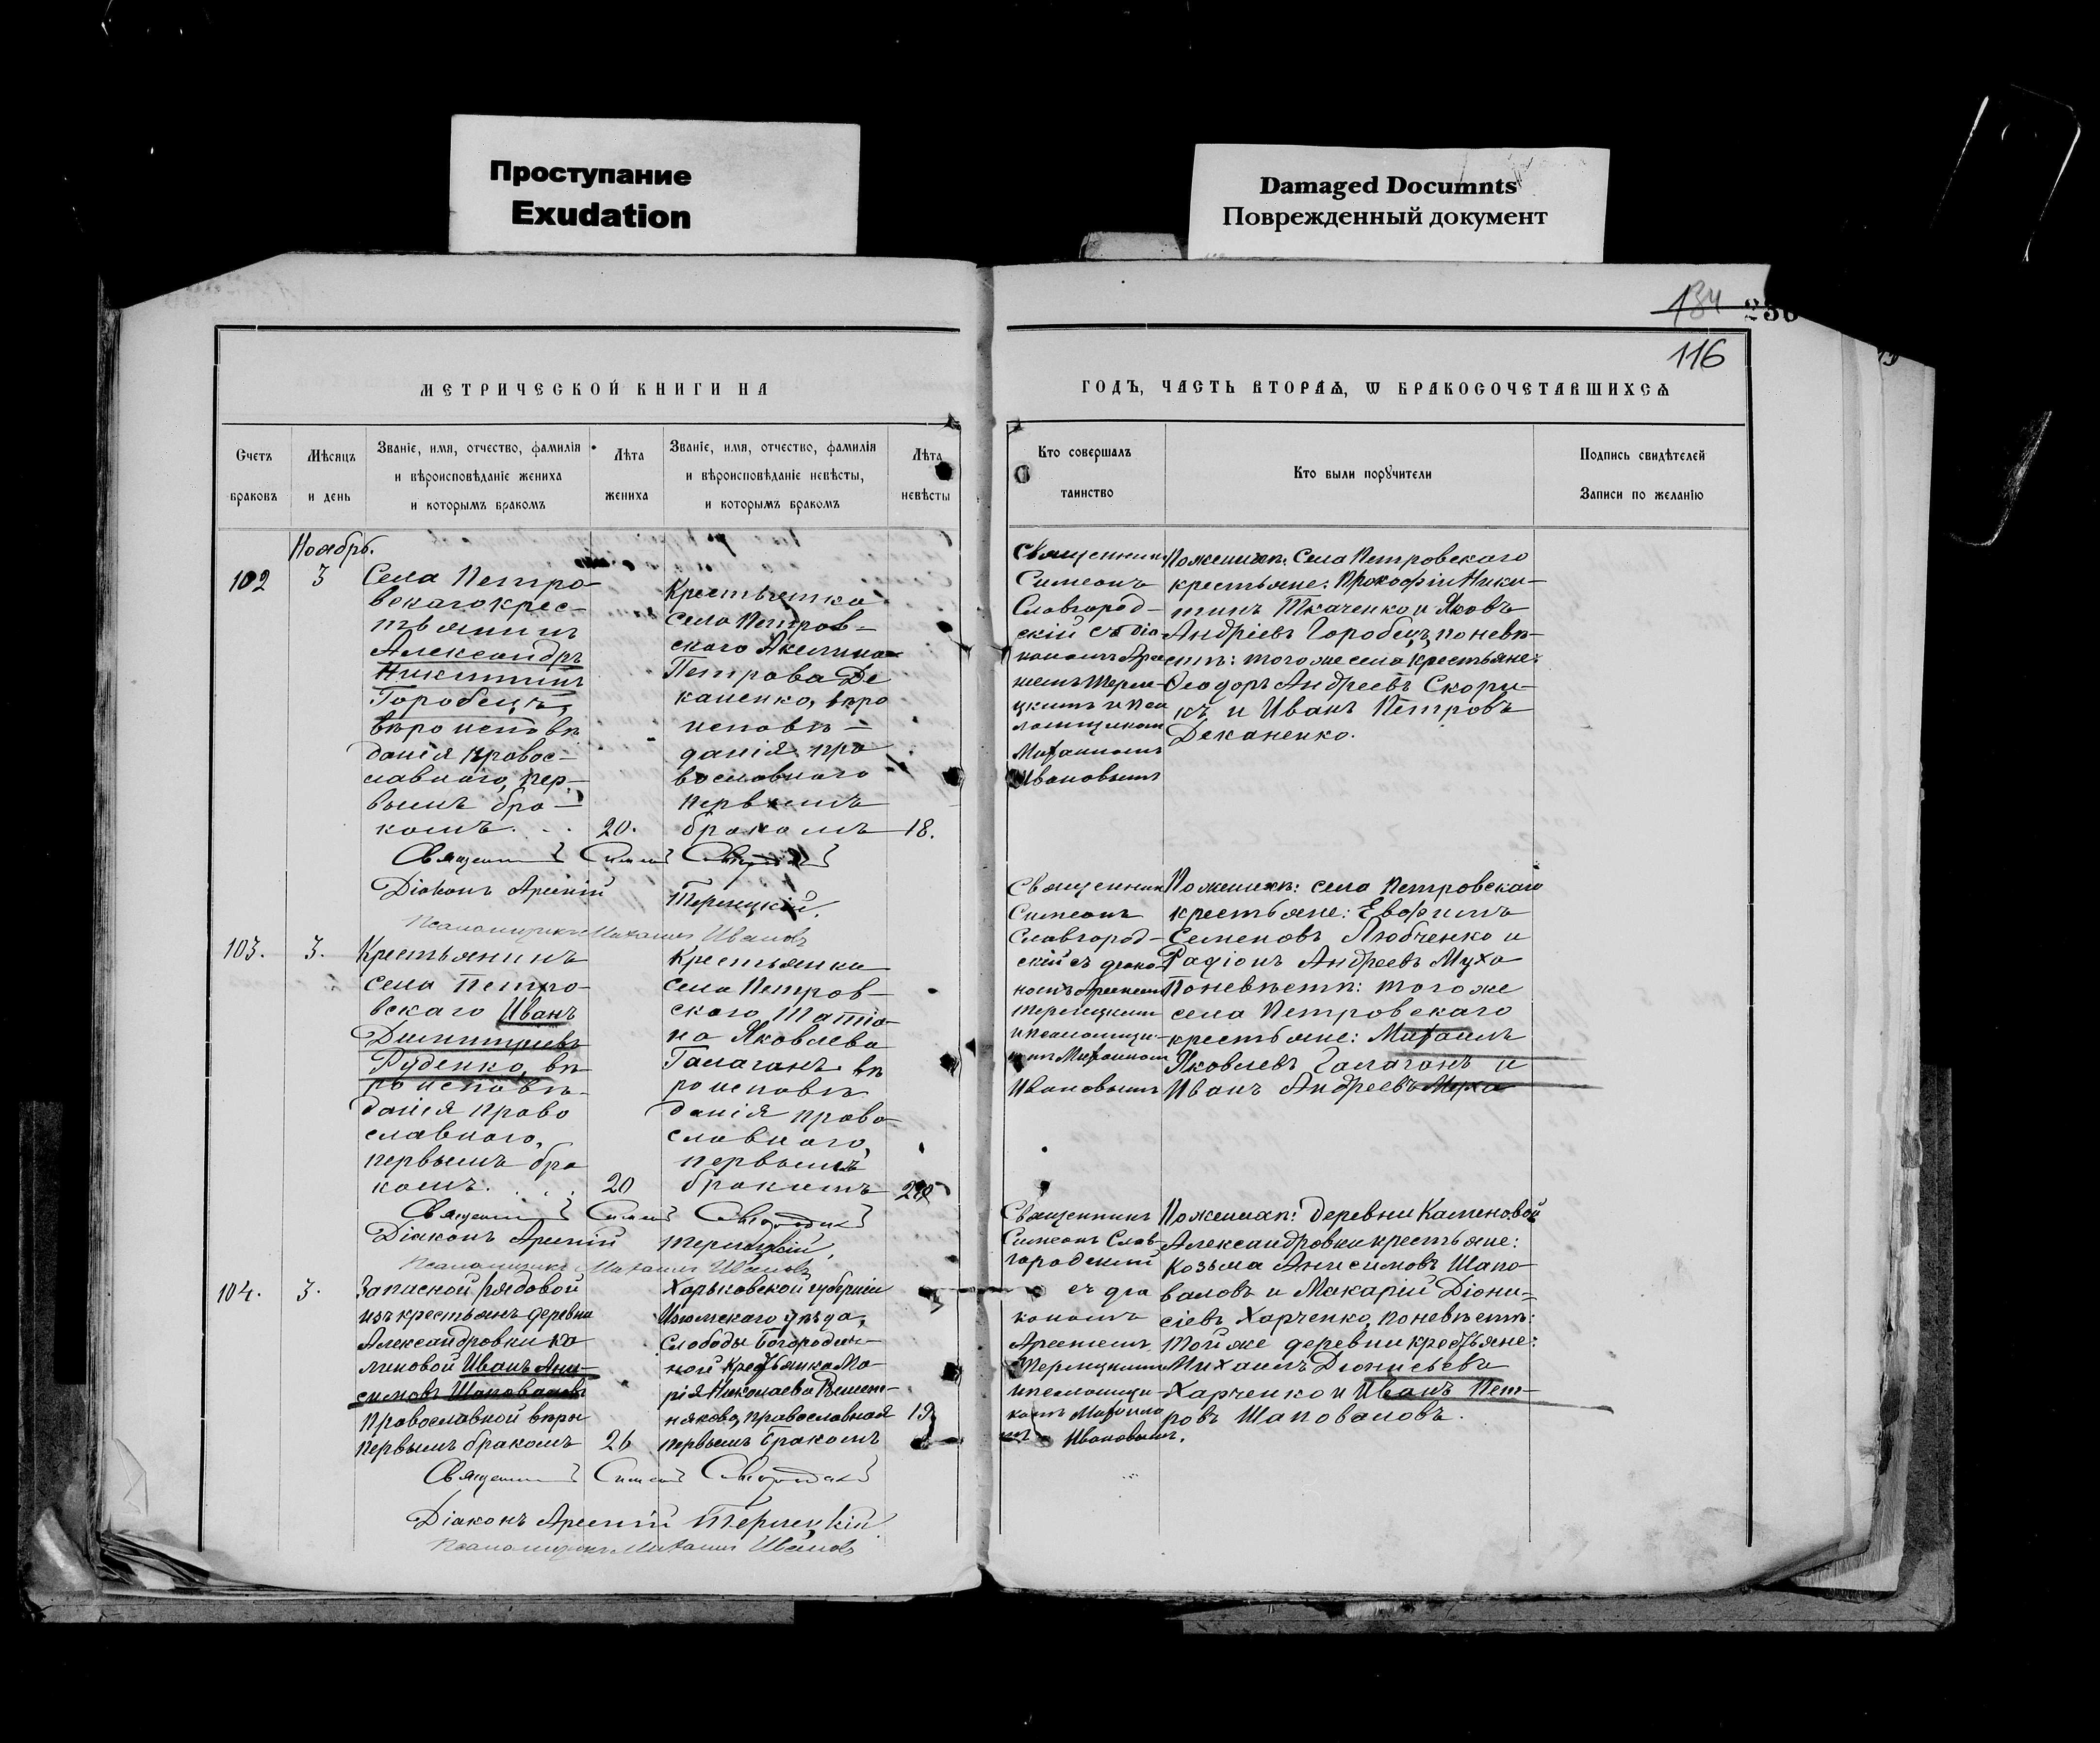 Проступание
Exudation
Damaged Documnts
Поврежденный документ
134
116
МЕТРИЧЕСКОЙ КНИГИ НА
Счетъ
браковъ
Мѣсяцъ
и день
Званіе, имя, отчество, фамилія
и вѣроисповѣданіе жениха
и которымъ бракомъ
Лѣта
жениха
Званіе, имя, отчество, фамилія
и вѣроисповѣданіе невѣсты,
и которымъ бракомъ
Лѣта
невѣсты
ГОДЪ, ЧАСТЬ ВТОРАЯ, Ѡ БРАКОСОЧЕТАВШИХСЯ
Кто совершалъ
таинство
Кто были порꙋчители
Подпись свидѣтелей
Записи по желанію
Ноябрь.
102
3
Села Петро-
вскаго крес-
тьянинъ
Александръ
Никитинъ
Горобецъ,
вѣроисповѣ
данія правос-
лавнаго, пер-
вымъ бра-
комъ.
20.
Крестьянка
села Петров-
скаго Акилина
Петрова Де
каненко, вѣро
исповѣ-
данія пра
вославнаго
первымъ
бракомъ
18.
Священникъ
Симеонъ
Славгород-
скій съ діа-
кономъ Арсе
ніемъ Терле-
цкимъ и пса
ломщикомъ
Михаиломъ
Ивановымъ
По женихѣ: Села Петровскаго
крестьяне: Прокофій Ники-
тинъ Ткаченко и Яковъ
Андріевъ Горобецъ, по невѣ-
стѣ: того же села крестьяне:
Ѳеодоръ Андреевъ Скори-
къ и Иванъ Петровъ
Деканенко.
Діаконъ Арсеній
Терлецкій.
Псаломщикъ Михаилъ Ивановъ
103.
3.
Крестьянинъ
села Петро-
вскаго Иванъ
Димитріевъ
Руденко, вѣ
роисповѣ-
данія право
славнаго,
первымъ бра
комъ.
20
Крестьянка
села Петров-
скаго Татіа-
на Яковлева
Галаганъ вѣ
роисповѣ
данія право-
славнаго,
первымъ
бракомъ
Священник
Симеонъ
Славгород-
скій съ діако-
номъ Арсеніем
Терлецкимъ
и псаломщи-
комъ Михаиломъ
Ивановымъ
По женихѣ: села Петровскаго
крестьяне: Евфимъ
Семеновъ Любченко и
Радіонъ Андреевъ Муха
По невѣстѣ: того же
села Петровскаго
крестьяне: Михаилъ
Яковлевъ Галаганъ и
Иванъ Андреевъ Муха
Діаконъ Арсеній
Терлецкій.
Псаломщикъ Михаилъ Ивановъ
104.
3.
Запасной рядовой
изъ крестьянъ деревни
Александровки Ка
линовой Иванъ Ани-
симовъ Шаповаловъ
Православной вѣры
первымъ бракомъ
26
Харьковской губерніи
Изюмскаго уѣзда,
Слободы Богородич-
ной Крестьянка Ма-
рія Николаева Рѣшет-
някова, православная
первымъ бракомъ
19
Священникъ
Симеонъ Слав-
городскій
съ діа
кономъ
Арсеніемъ
Терлецкимъ
и псаломщи-
комъ Михаило
мъ Ивановымъ.
По женихѣ: деревни Каменовой
Александровки крестьяне:
Козьма Анисимовъ Шапо-
валовъ и Макарій Діони-
сіевъ Харченко, по невѣстѣ:
той же деревни крестьяне:
Михаилъ Діонисьевъ
Харченко и Иванъ Пет-
ровъ Шаповаловъ.
Діаконъ Арсеній Терлецкій
Псаломщикъ Михаилъ Ивановъ